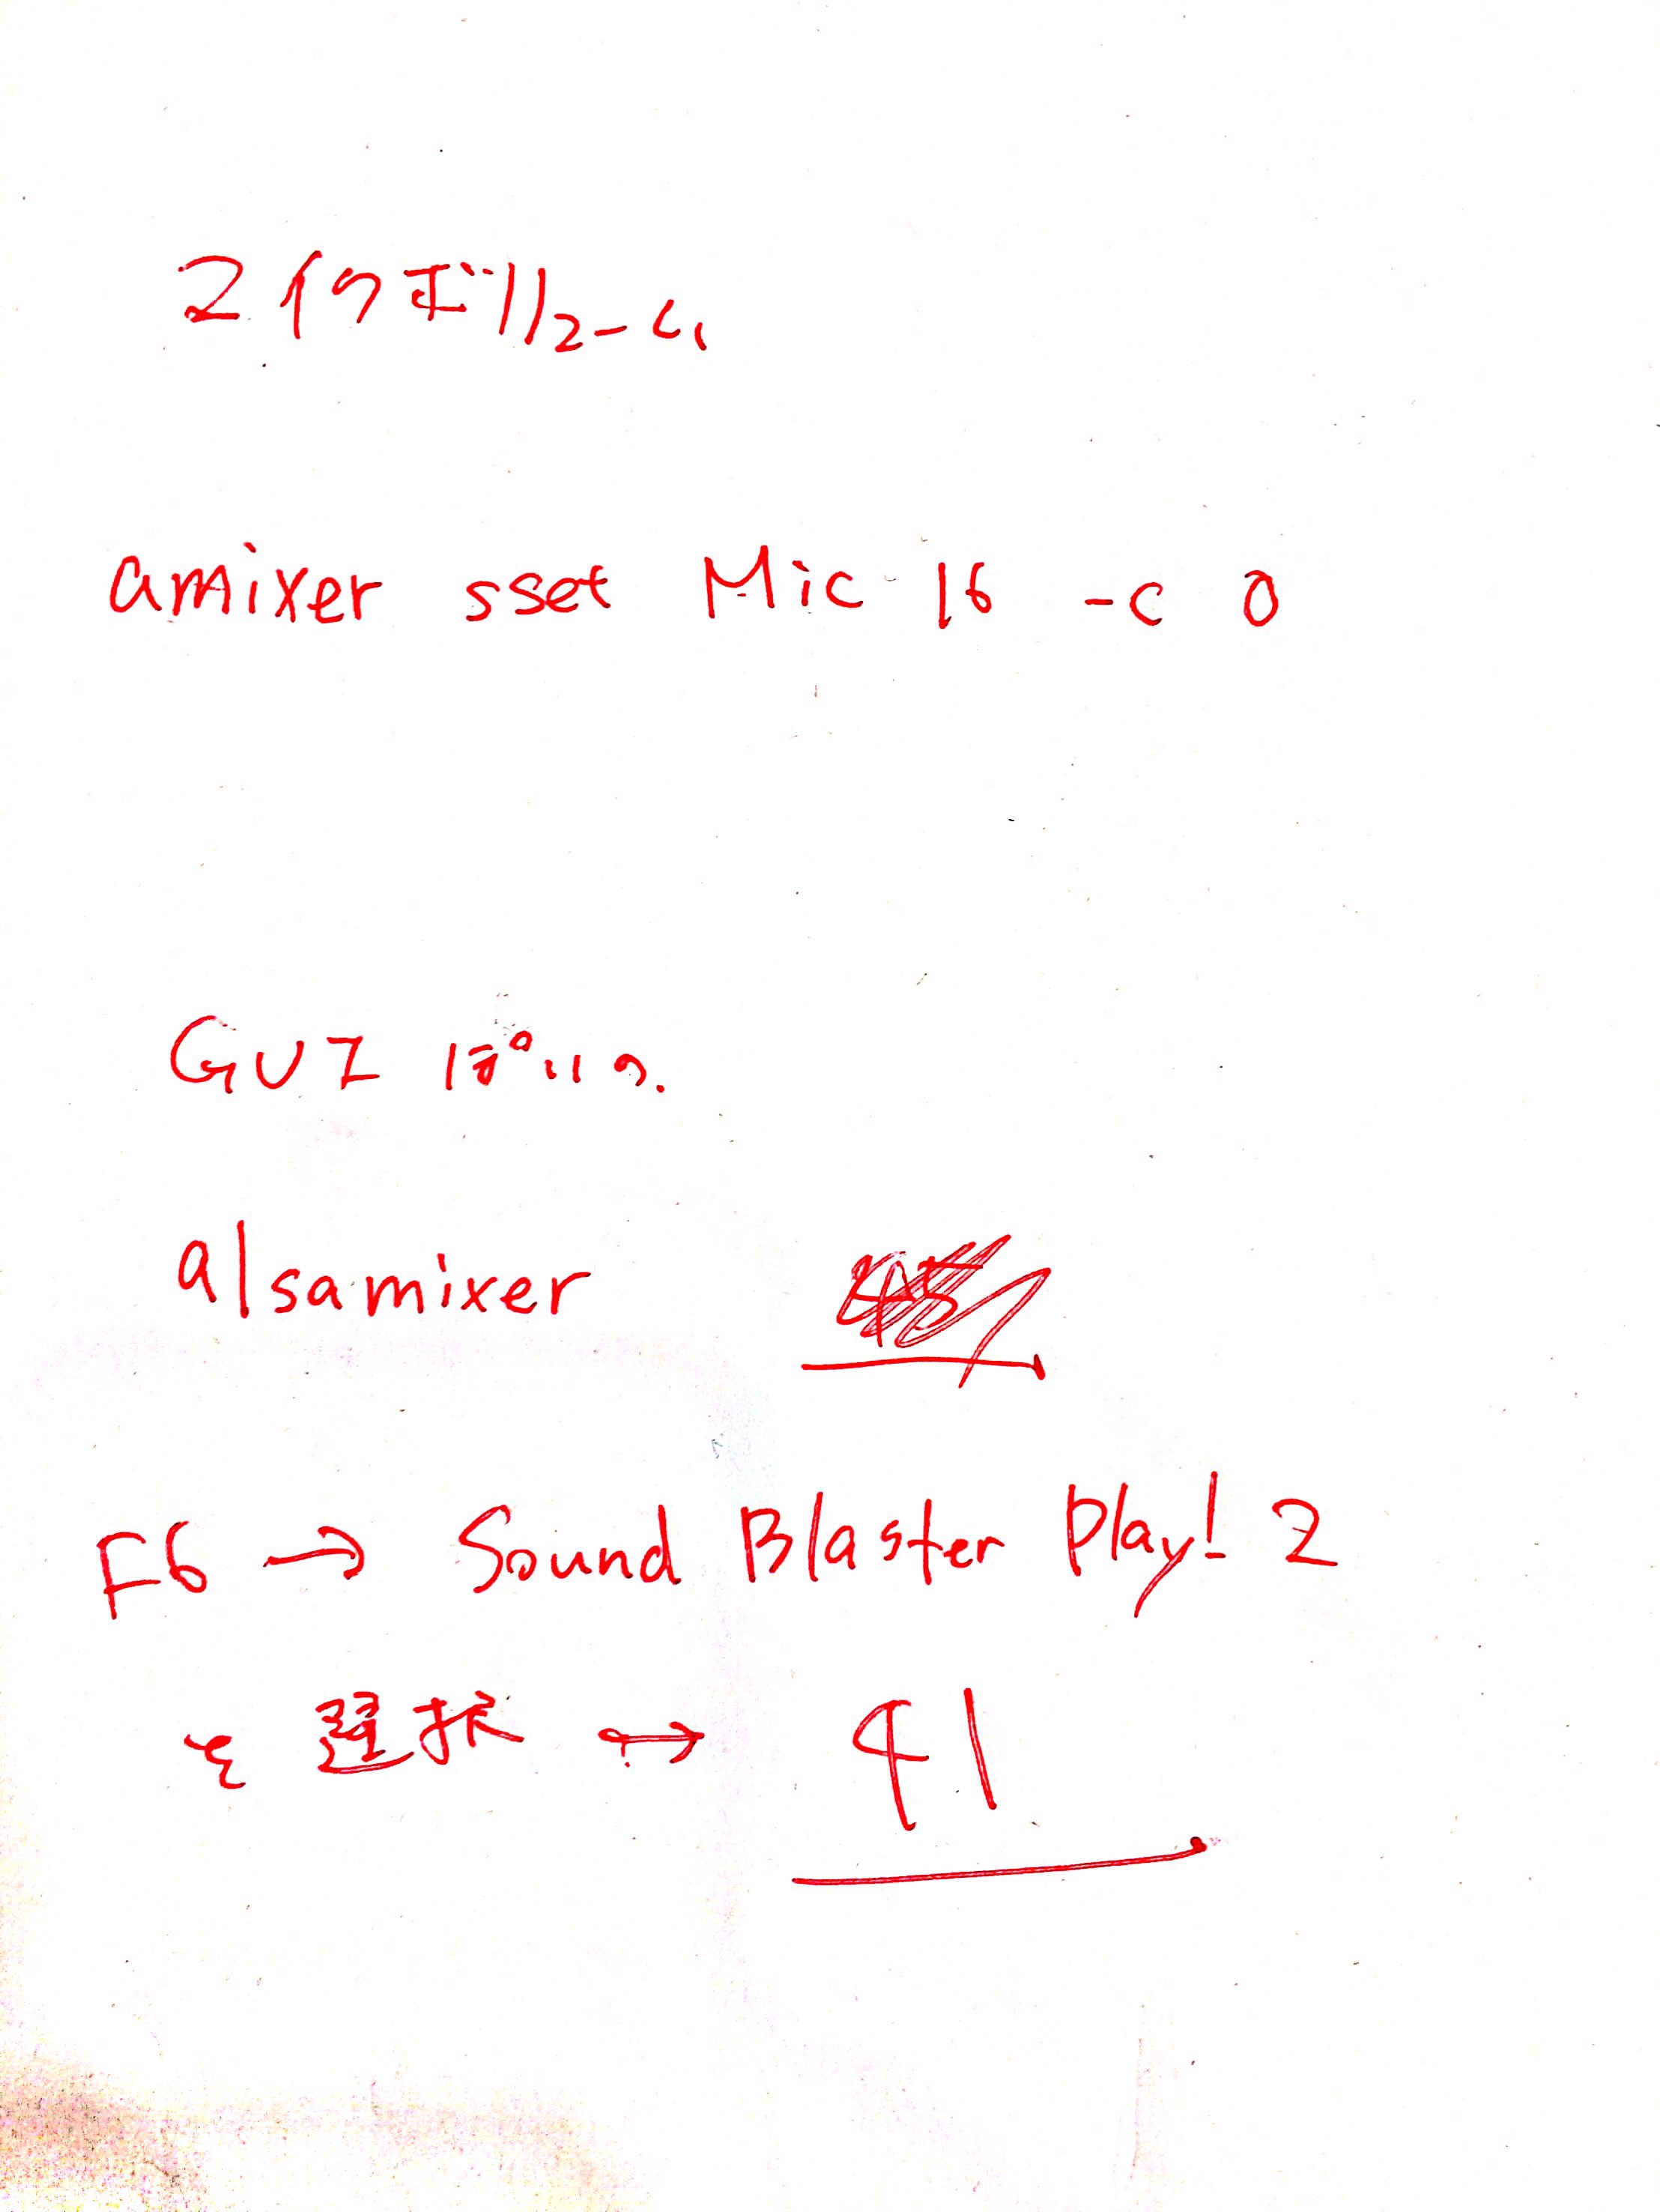 マイクボリューム
amixer sset Mic 16 -c 0
GUI っぽいの.
alsamixer
F6 → Sound Blaster Play! 2
を 選択 → 41